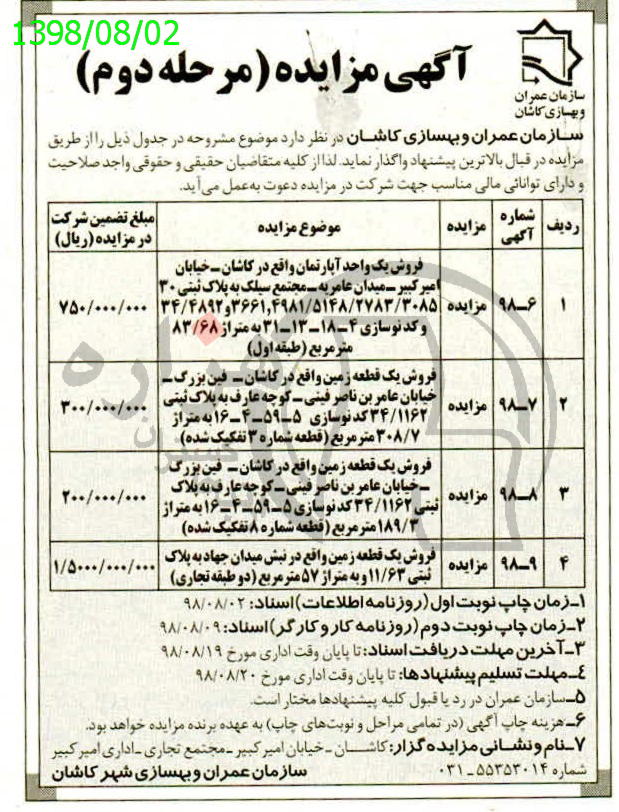 1398/08/02
سازمان عمران
وبهسازی کاشان
آگهی مزایده (مرحله دوم)
سازمان عمران و بهسازی کاشان در نظر دارد موضوع مشروحه در جدول ذیل را از طریق
مزایده در قبال بالاترین پیشنهاد واگذار نماید. لذا از کلیه متقاضیان حقیقی و حقوقی واجد صلاحیت
و دارای توانائی مالی مناسب جهت شرکت در مزایده دعوت به‌عمل می‌آید.
ردیف شماره آگهی مزایده موضوع مزایده مبلغ تضمین شرکت در مزایده (ریال)
۱ ۶ــ۹۸ مزایده ۷۵۰/۰۰۰/۰۰۰
فروش یک واحد آپارتمان واقع در کاشان ــ خیابان
امیرکبیر ــ میدان عامریه ــ مجتمع سیلک به پلاک ثبتی ۳۰
۳۶۶۱,۴۹۸۱/۵۱۴۸/۲۷۸۳/۳۰۸۵ و ۳۴/۴۸۹۲
و کد نوسازی ۴ــ۱۸ــ۱۳ــ۳۱ به متراژ ۸۳/۶۸
مترمربع (طبقه اول)
۲ ۷ــ۹۸ مزایده ۳۰۰/۰۰۰/۰۰۰
فروش یک قطعه زمین واقع در کاشان ــ فین بزرگ ــ
خیابان عامربن ناصر فینی ــ کوچه عارف به پلاک ثبتی
۳۴/۱۱۶۲ کد نوسازی ۵ــ۵۹ــ۴ــ۱۶ به متراژ
۳۰۸/۷ مترمربع (قطعه شماره ۳ تفکیک شده)
۳ ۸ــ۹۸ مزایده ۲۰۰/۰۰۰/۰۰۰
فروش یک قطعه زمین واقع در کاشان ــ فین بزرگ
ــ خیابان عامربن ناصر فینی ــ کوچه عارف به پلاک
ثبتی ۳۴/۱۱۶۲ کد نوسازی ۵ــ۵۹ــ۴ــ۱۶ به متراژ
۱۸۹/۳ مترمربع (قطعه شماره ۸ تفکیک شده)
۴ ۹ــ۹۸ مزایده ۱/۵۰۰۰/۰۰۰/۰۰۰
فروش یک قطعه زمین واقع در نبش میدان جهاد به پلاک
ثبتی ۱۱/۶۳ و به متراژ ۵۷ مترمربع (دو طبقه تجاری)
۱ــ زمان چاپ نوبت اول (روزنامه اطلاعات) اسناد: ۹۸/۰۸/۰۲
۲ــ زمان چاپ نوبت دوم (روزنامه کار و کارگر) اسناد: ۹۸/۰۸/۰۹
۳ــ آخرین مهلت دریافت اسناد: تا پایان وقت اداری مورخ ۹۸/۰۸/۱۹
۴ــ مهلت تسلیم پیشنهادها: تا پایان وقت اداری مورخ ۹۸/۰۸/۲۰
۵ــ سازمان عمران در رد یا قبول کلیه پیشنهادها مختار است.
۶ــ هزینه چاپ آگهی (در تمامی مراحل و نوبت‌های چاپ) به عهده برنده مزایده خواهد بود.
۷ــ نام و نشانی مزایده‌گزار: کاشان ــ خیابان امیرکبیر ــ مجتمع تجاری ــ اداری امیرکبیر
شماره ۵۵۳۵۳۰۱۴ــ۰۳۱
سازمان عمران و بهسازی شهر کاشان